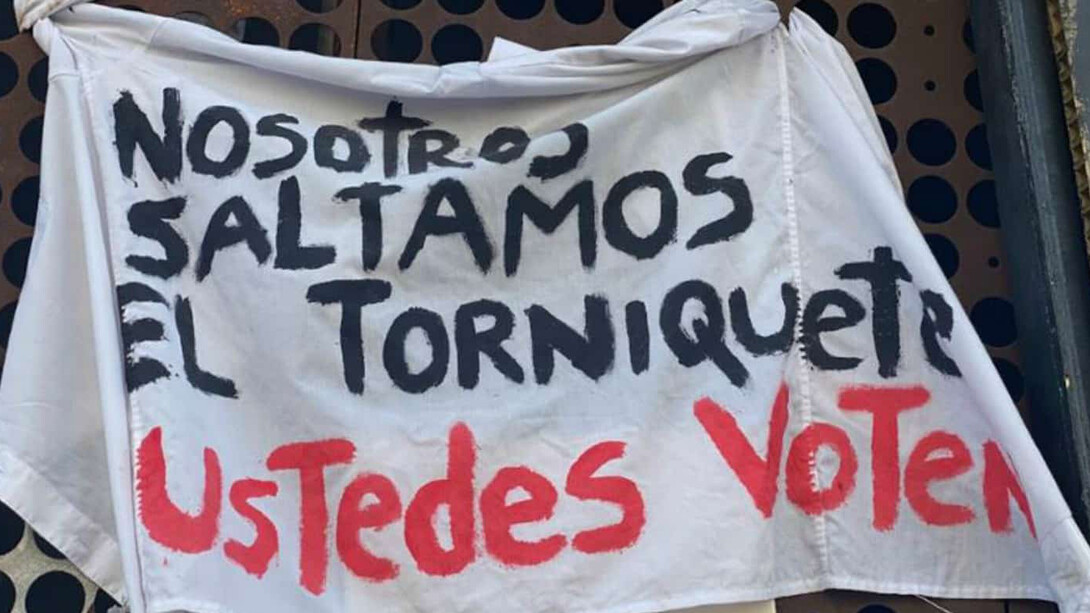 NOSOTROS
SALTAMOS
EL TORNIQUETE
USTEDES VOTEN